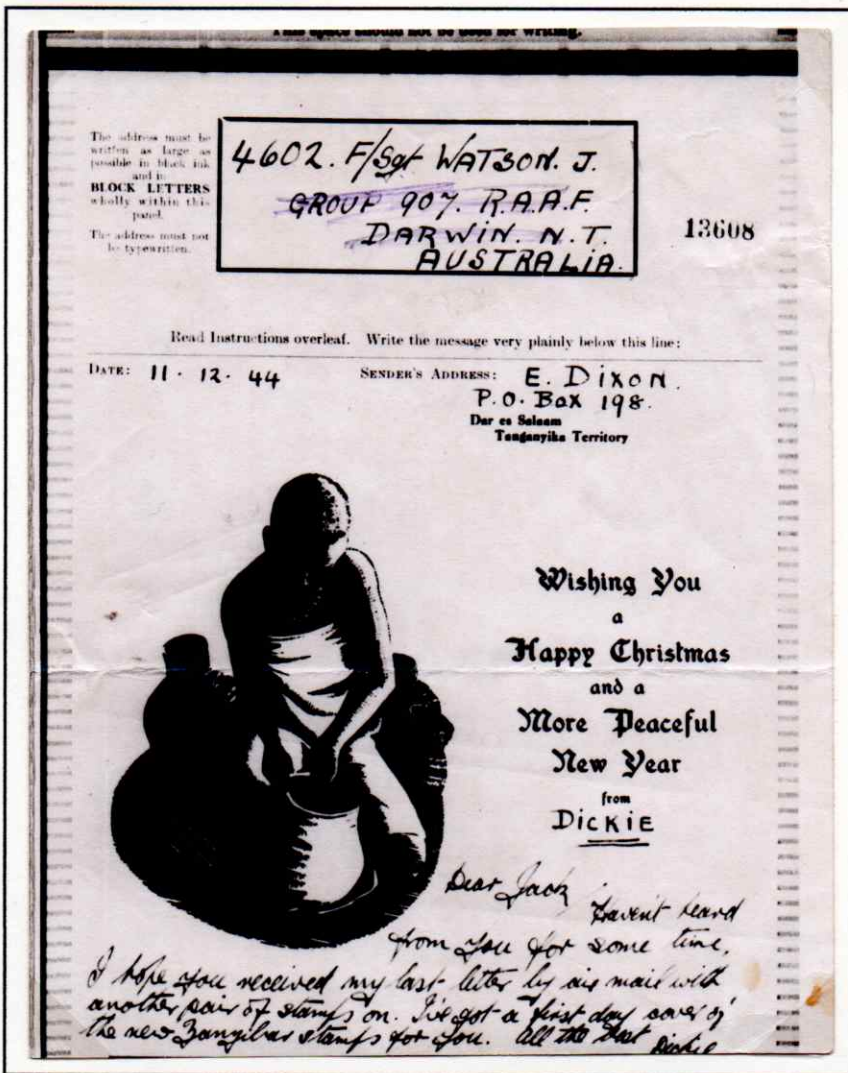 This space should not be used for writing.
The address must be
written as large as
possible in black ink
and in
BLOCK LETTERS
wholly within this
panel.
The address must not
be typewritten.
4602. F/Sgt WATSON. J.
GROUP 907. R.A.A.F.
DARWIN. N.T.
AUSTRALIA.
13608
Read Instructions overleaf. Write the message very plainly below this line:
DATE: 11 · 12 · 44
SENDER'S ADDRESS: E. DIXON.
P.O. BOX 198.
Dar es Salaam
Tanganyika Territory
Wishing You
a
Happy Christmas
and a
More Peaceful
New Year
from
DICKIE
Dear Jack,
Haven't heard
from you for some time,
I hope you received my last letter by air mail with
another pair of stamps on. I've got a first day cover of
the new Zanzibar stamps for you. All the best Dickie